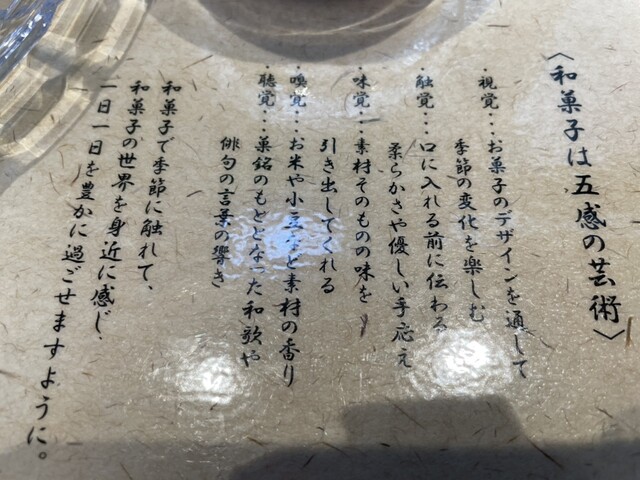 〈和菓子は五感の芸術〉
・視覚…お菓子のデザインを通して
季節の変化を楽しむ
・触覚…口に入れる前に伝わる
柔らかさや優しい手応え
・味覚…素材そのものの味を
引き出してくれる
・嗅覚…お米や小豆など素材の香り
・聴覚…菓銘のもととなった和歌や
俳句の言葉の響き
和菓子で季節に触れて、
和菓子の世界を身近に感じ、
一日一日を豊かに過ごせますように。